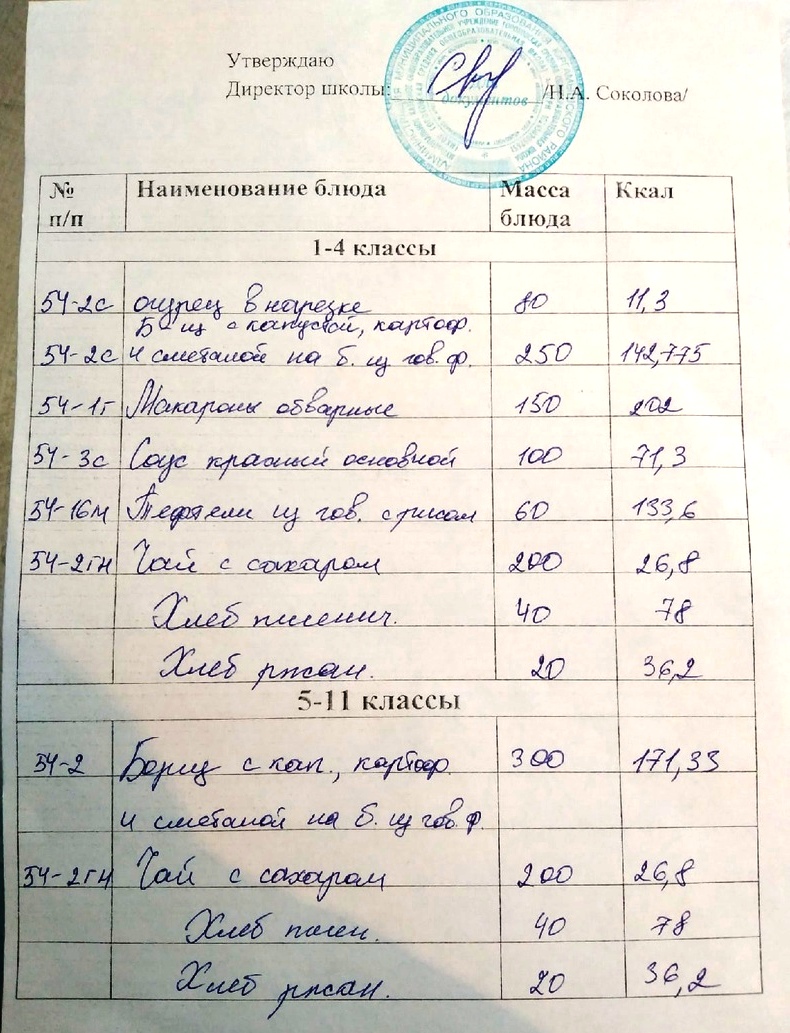 Утверждаю
Директор школы: /Н.А. Соколова/
документов
№ п/п Наименование блюда Масса блюда Ккал
1-4 классы
54-2с огурец в нарезке 80 11,3
Б щ с капустой, картоф.
54-2с и сметаной на б. из гов. ф. 250 142,775
54-1г Макароны отварные 150 202
54-3с Соус красный основной 100 71,3
54-16м Тефтели из гов. с рисом 60 133,6
54-2гн Чай с сахаром 200 26,8
Хлеб пшенич. 40 78
Хлеб ржан. 20 36,2
5-11 классы
54-2 Борщ с кап., картоф. 300 171,33
и сметаной на б. из гов. ф.
54-2гн Чай с сахаром 200 26,8
Хлеб пшен. 40 78
Хлеб ржан. 20 36,2